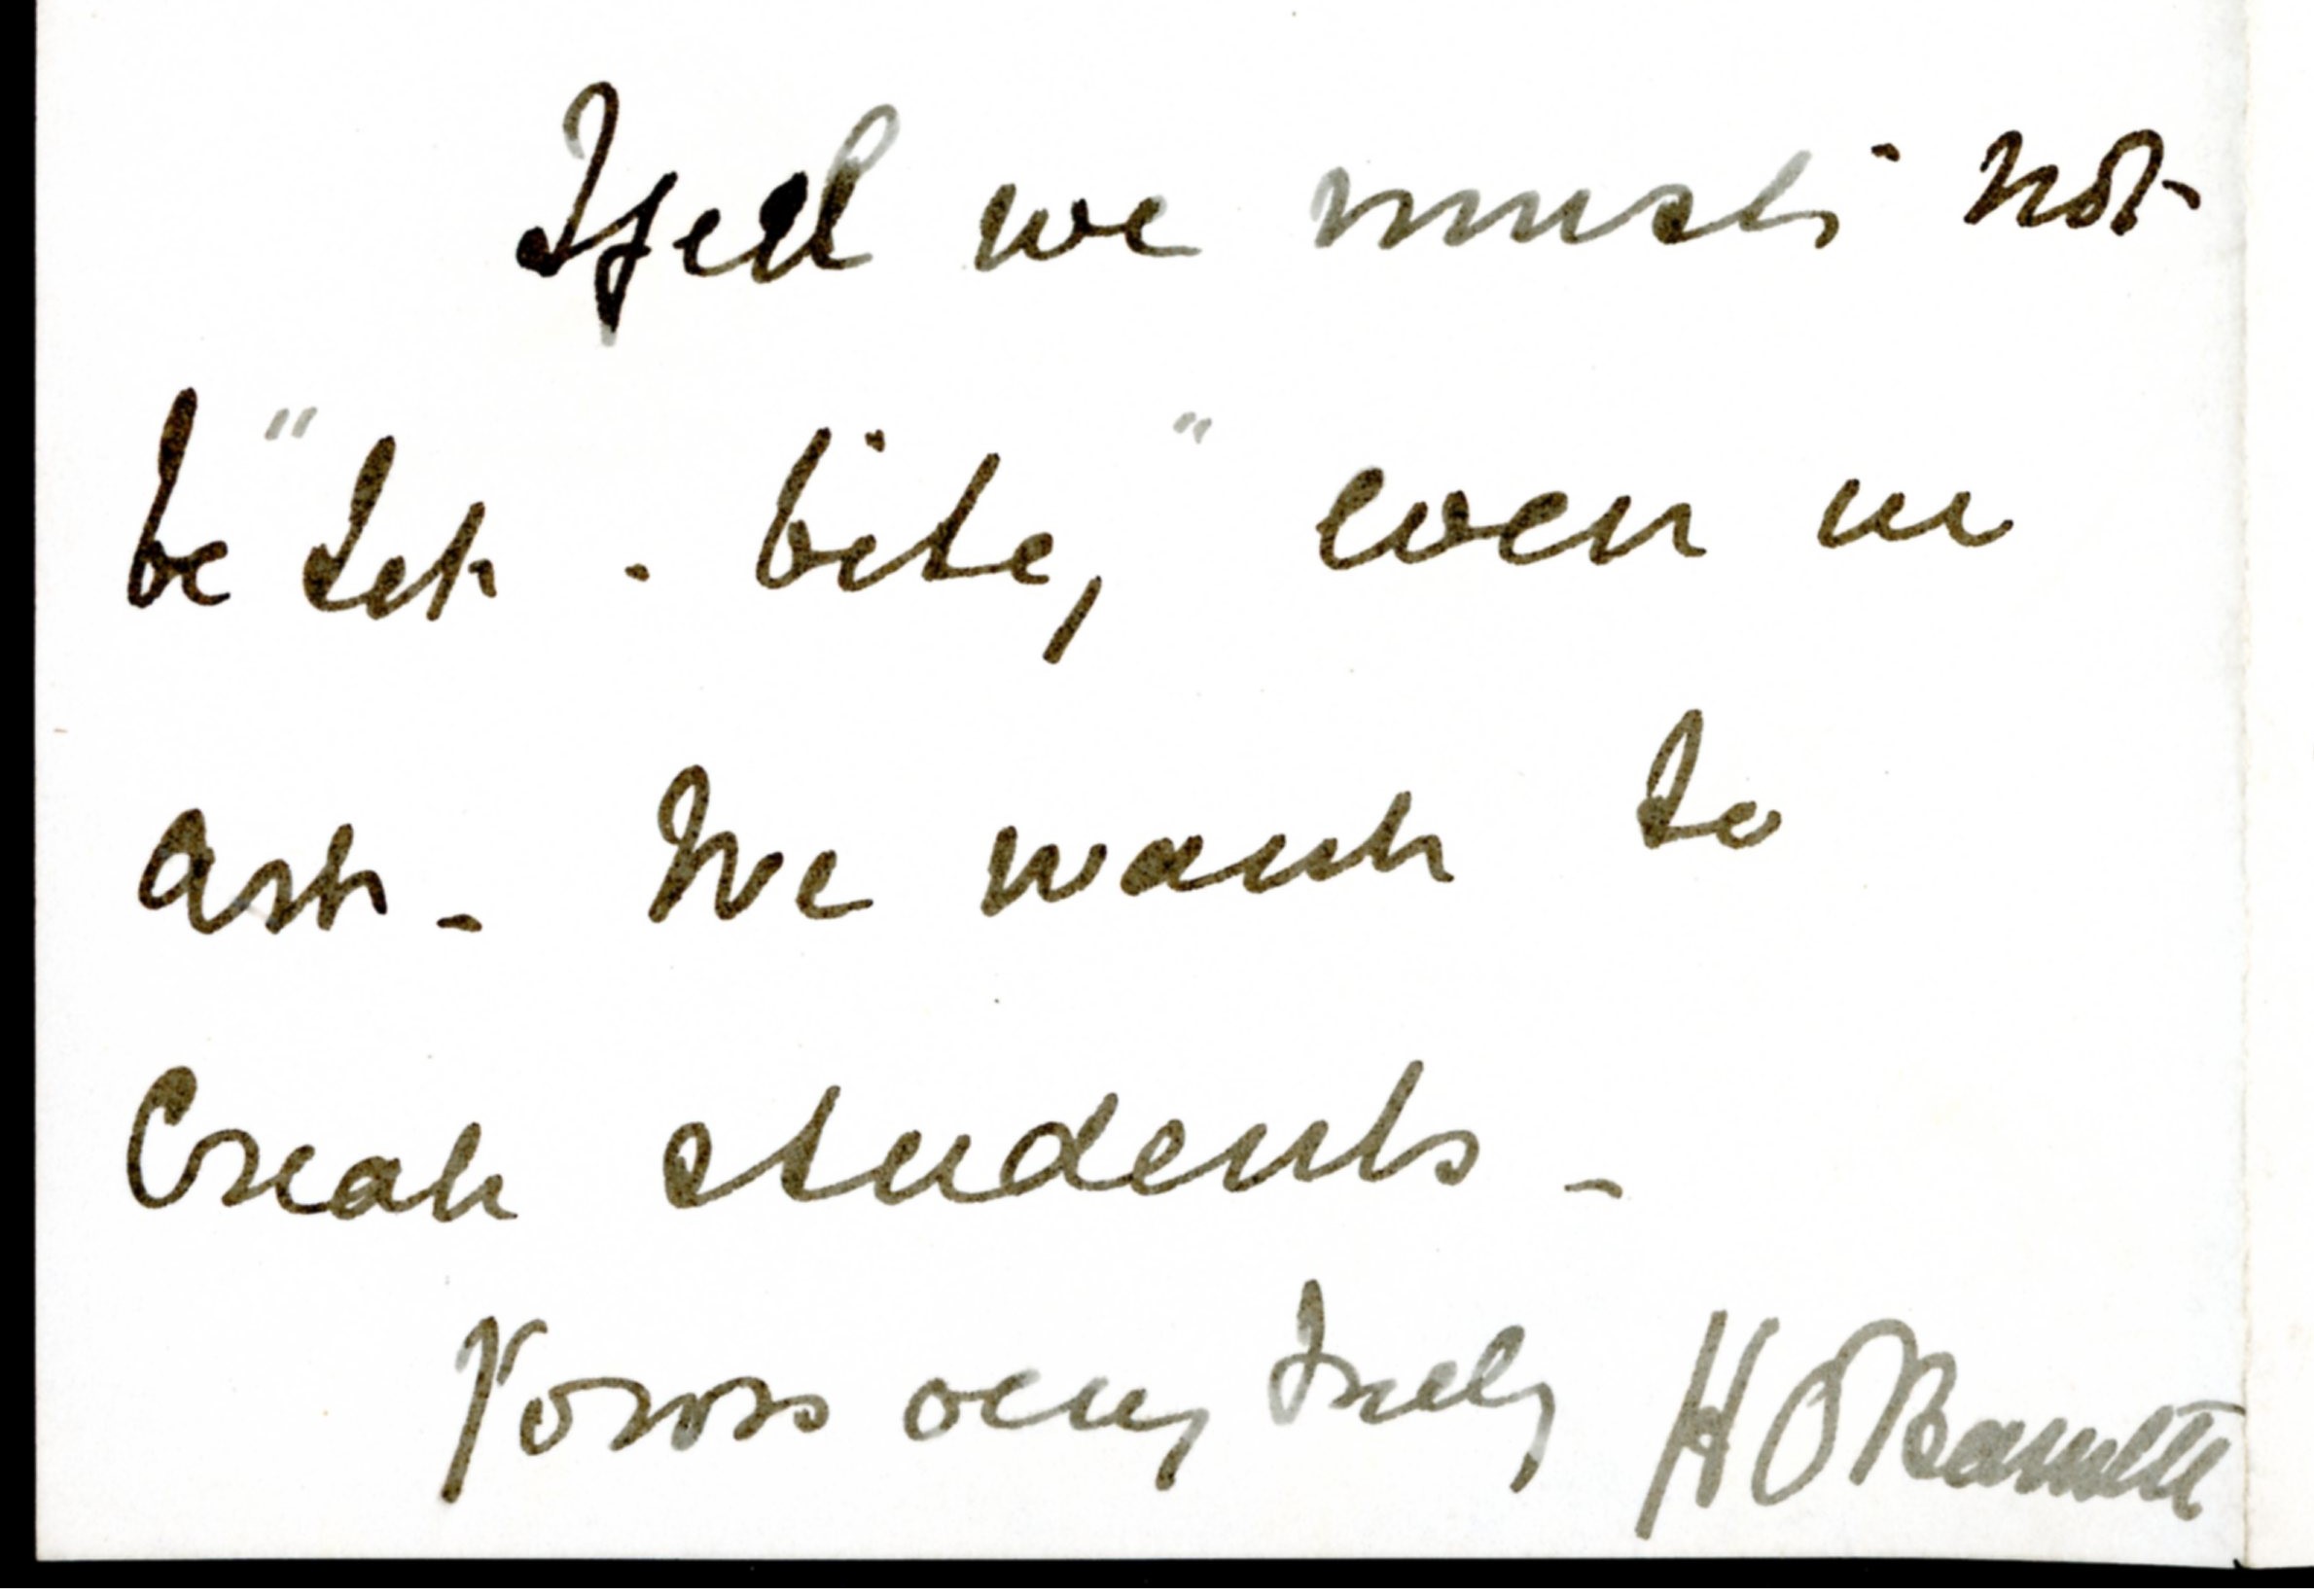 I feel we must not
be "tit-bite," even in
art - We want to
Create students -
Yours very truly H O Barnett